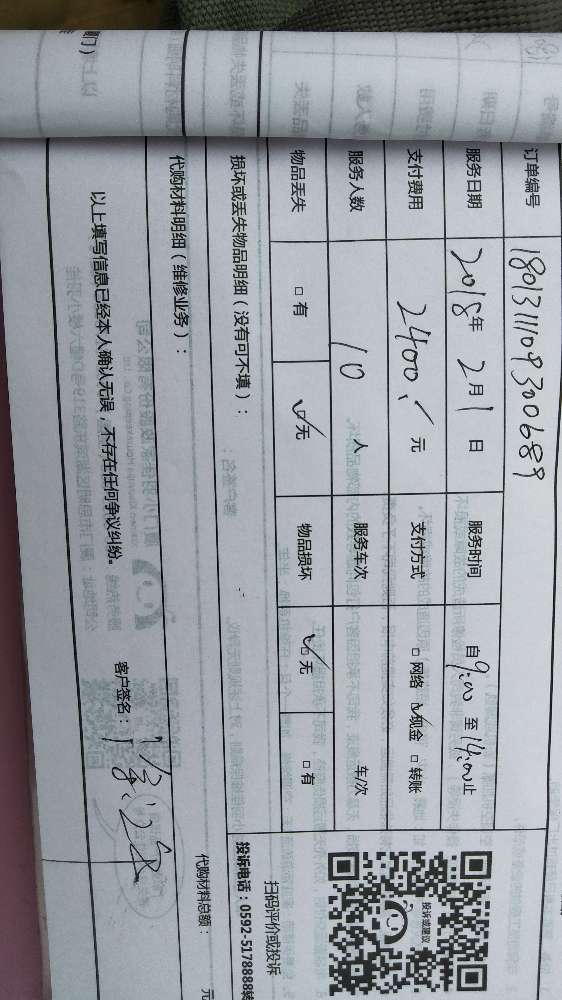 订单编号 1801311109300689
服务日期 2018年 2月 1日 服务时间 自9:00 至14:00止
支付费用 2400. 元 支付方式 □网络 ☑现金 □转账
服务人数 10 人 服务车次 车/次
物品丢失 □有 ☑无 物品损坏 ☑无 □有
损坏或丢失物品明细（没有可不填）：
代购材料明细（维修业务）：
代购材料总额： 元
以上填写信息已经本人确认无误，不存在任何争议纠纷。
客户签名：
投诉或建议
扫码评价或投诉
投诉电话：0592-5178888转